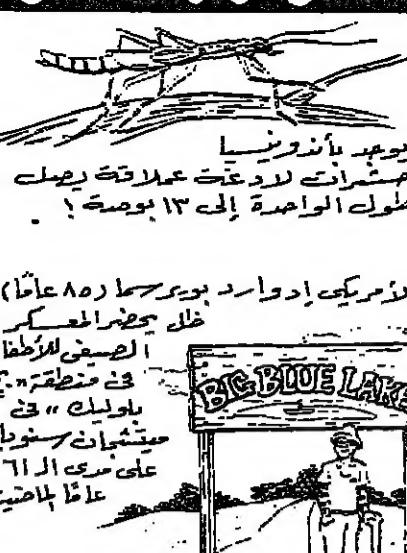 يوجد بأندونيسيا
حشرات لادغة عملاقة يصل
طول الواحدة إلى ١٣ بوصة !
لأمريكى إدوارد بويرسما (٨٥ عامًا)
ظل يحضر المعسكر
الصيفى للأطفا
فى منطقة «
بلوليك» فى
ميتشجان سنويا
على مدى الـ ٦١
عامًا الماضية
BIG BLUE LAKE